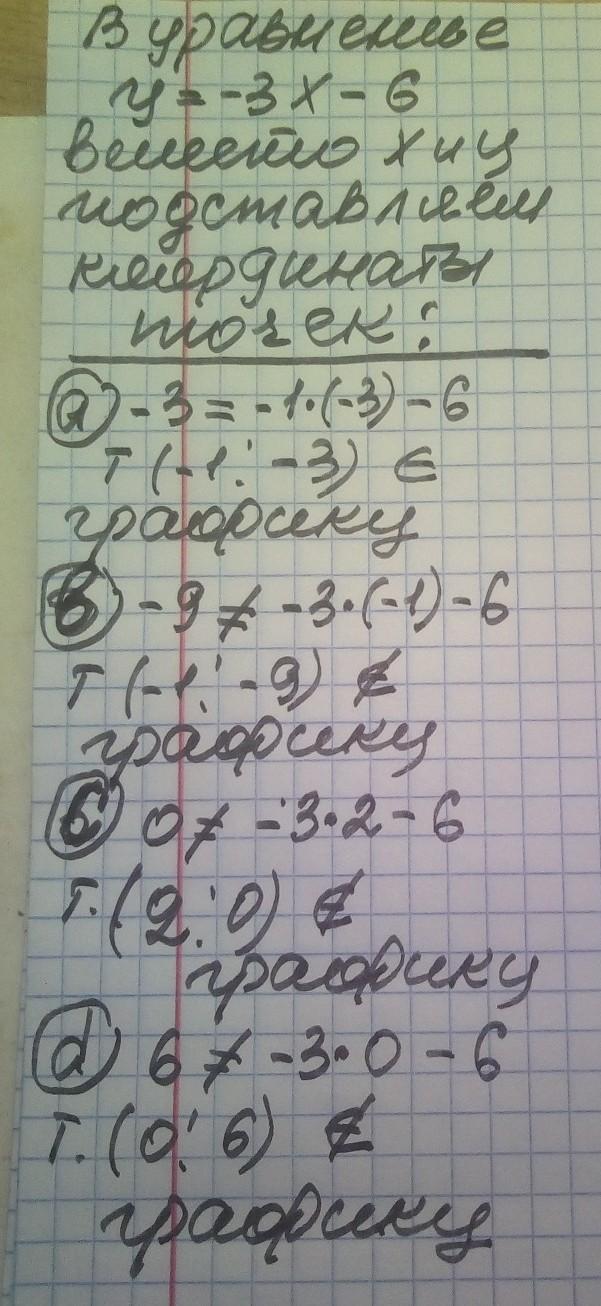 В уравненье
у = -3х - 6
вместо х и у
подставляем
координаты
точек:
a) -3 = -1·(-3) - 6
Т (-1; -3) ∈
графику
b) -9 ≠ -3·(-1) - 6
Т (-1; -9) ∉
графику
c) 0 ≠ -3·2 - 6
Т. (2; 0) ∉
графику
d) 6 ≠ -3·0 - 6
Т. (0; 6) ∉
графику